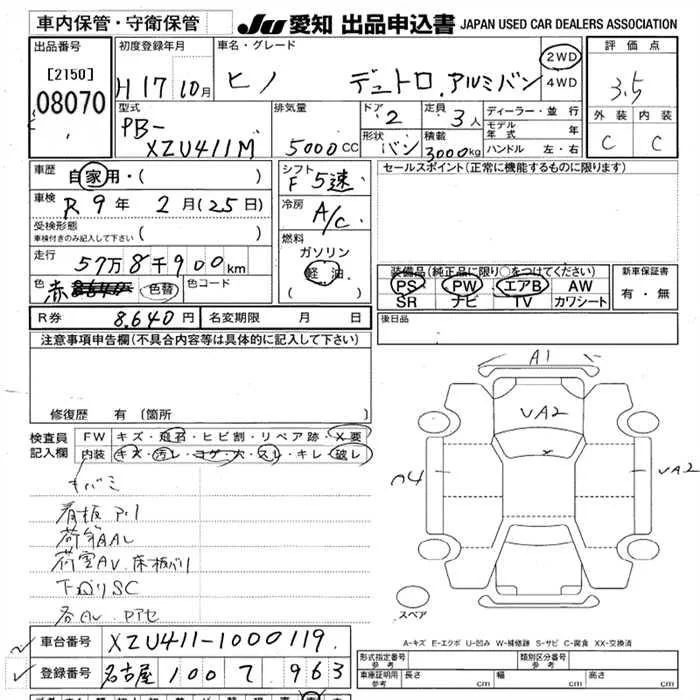 車内保管・守衛保管
JU 愛知 出品申込書 JAPAN USED CAR DEALERS ASSOCIATION
出品番号
[2150]
08070
初度登録年月
H17 10月
車名・グレード
ヒノ デュトロ.アルミバン
2WD
4WD
評価点
3.5
外装 内装
C C
型式
PB-
XZU411M
排気量
5000CC
ドア
2
形状
バン
定員
3人
積載
3000kg
ディーラー・並行
モデル年式 年
ハンドル 左・右
車歴 自家用・( )
車検 R9年 2月(25日)
受検形態
車検付きのみ記入して下さい ( )
走行 57万8千900km
色 赤 色替 色コード
シフト
F 5速
冷房
A/C
燃料
ガソリン
軽油
( )
セールスポイント(正常に機能するものに限ります)
装備品(純正品に限り○をつけてください)
PS PW エアB AW
SR ナビ TV カワシート
新車保証書
有・無
R券 8,640円
名変期限 月 日
後日品
注意事項申告欄(不具合内容等は具体的に記入して下さい)
修復歴 有 (箇所 )
検査員
記入欄
FW キズ・飛石・ヒビ割・リペア跡・X要
内装 キズ・汚レ・コゲ・穴・スレ・キレ・破レ
キバミ
看板
荷室AV.床板バリ
下回りSC
各AV.
A1
VA2
VA2
スペア
A-キズ E-エクボ U-凹み W-補修跡 S-サビ C-腐食 XX-交換済
車台番号 XZU411-1000119
登録番号 名古屋 100 963
形式指定番号
参考
類別区分番号
参考
車庫証明用
参考
長さ cm
幅 cm
高さ cm